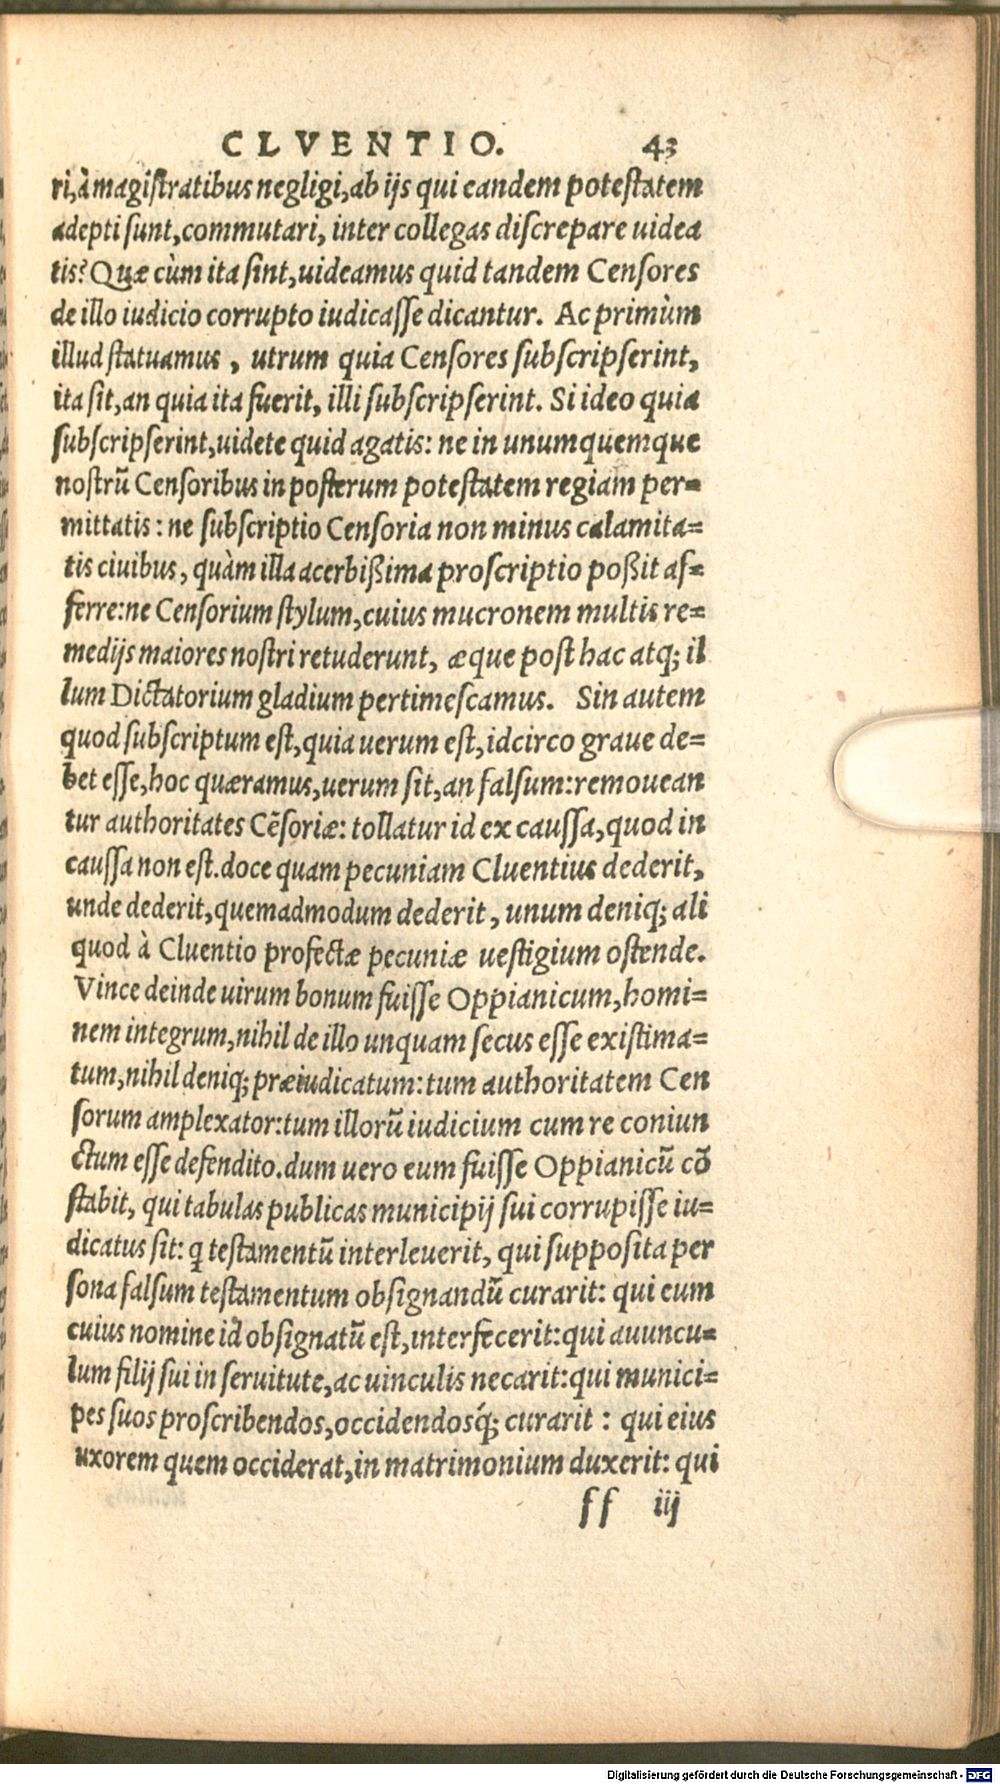 CLVENTIO. 43
ri,à magistratibus negligi,ab ijs qui eandem potestatem
adepti sunt,commutari, inter collegas discrepare uidea
tis? Quæ cùm ita sint,uideamus quid tandem Censores
de illo iudicio corrupto iudicasse dicantur. Ac primùm
illud statuamus , utrum quia Censores subscripserint,
ita sit,an quia ita fuerit, illi subscripserint. Si ideo quia
subscripserint,uidete quid agatis: ne in unumquemque
nostrũ Censoribus in posterum potestatem regiam per=
mittatis: ne subscriptio Censoria non minus calamita=
tis ciuibus, quàm illa acerbißima proscriptio poßit af=
ferre:ne Censorium stylum,cuius mucronem multis re=
medijs maiores nostri retuderunt, æque post hac atq; il
lum Dictatorium gladium pertimescamus. Sin autem
quod subscriptum est,quia uerum est,idcirco graue de=
bet esse,hoc quæramus,uerum sit,an falsum:remouean
tur authoritates Cẽsoriæ: tollatur id ex caussa,quod in
caussa non est.doce quam pecuniam Cluentius dederit,
unde dederit,quemadmodum dederit, unum deniq; ali
quod à Cluentio profectæ pecuniæ uestigium ostende.
Vince deinde uirum bonum fuisse Oppianicum,homi=
nem integrum,nihil de illo unquam secus esse existima=
tum,nihil deniq; præiudicatum: tum authoritatem Cen
sorum amplexator:tum illorũ iudicium cum re coniun
ctum esse defendito.dum uero eum fuisse Oppianicũ cõ
stabit, qui tabulas publicas municipij sui corrupisse iu=
dicatus sit: q testamentũ interleuerit, qui supposita per
sona falsum testamentum obsignandũ curarit: qui eum
cuius nomine id obsignatũ est,interfecerit:qui auuncu=
lum filij sui in seruitute,ac uinculis necarit:qui munici=
pes suos proscribendos,occidendosq́; curarit : qui eius
uxorem quem occiderat,in matrimonium duxerit: qui
ff iij
Digitalisierung gefördert durch die Deutsche Forschungsgemeinschaft - DFG